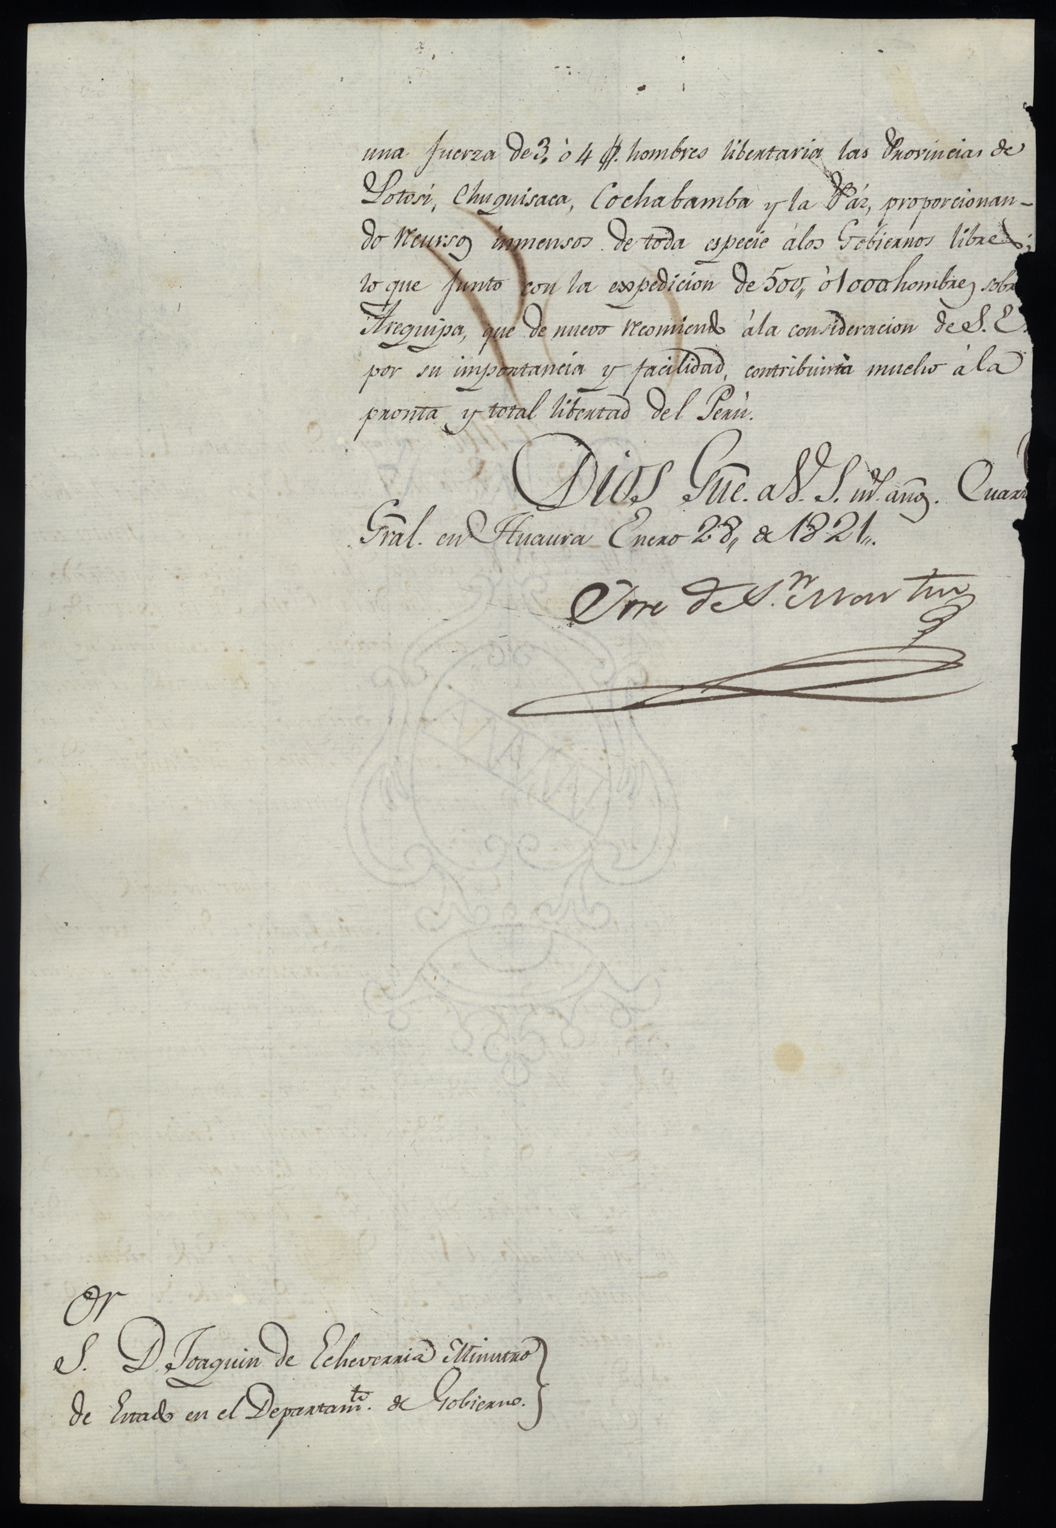 una fuerza de 3, ó 4 $. hombres libertaria las Provincias de
Potosi, Chuquisaca, Cochabamba y la Páz, proporcionan-
do recursos inmensos de toda especie á los Gobiernos libres;
lo que junto con la expedicion de 500,, ó 1000 hombres sobre
Arequipa, que de nuevo recomiendo á la consideracion de S. E.
por su importancia y facilidad, contribuiria mucho á la
pronta y total libertad del Perú.
Dios Gue. a V. S. ms. añs. Cuart
Gral. en Huaura Enero 28,, de 1821,,.
Jose de Sn. Martin
Or
S. D. Joaquin de Echeverria Ministro
de Estado en el Departamto. de Gobierno.